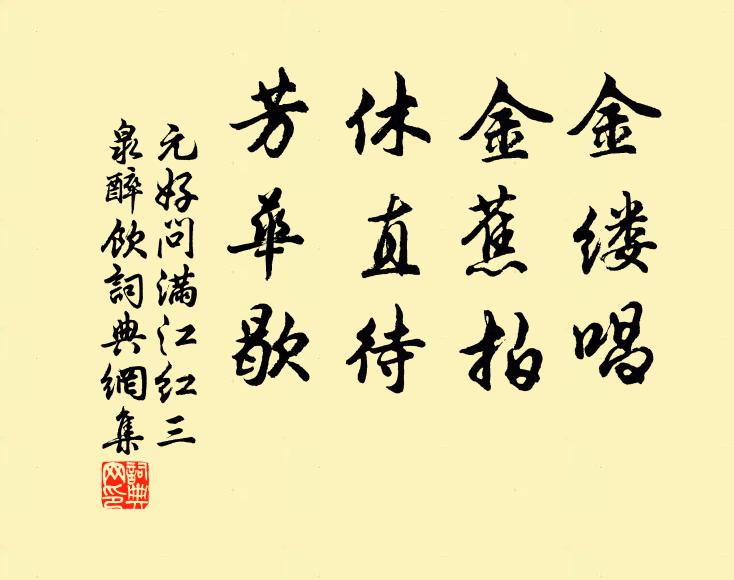 金缕唱
金蕉拍
休直待
芳華歇
元好问滿江红三
泉醉飲詞典網集
詞典
网印